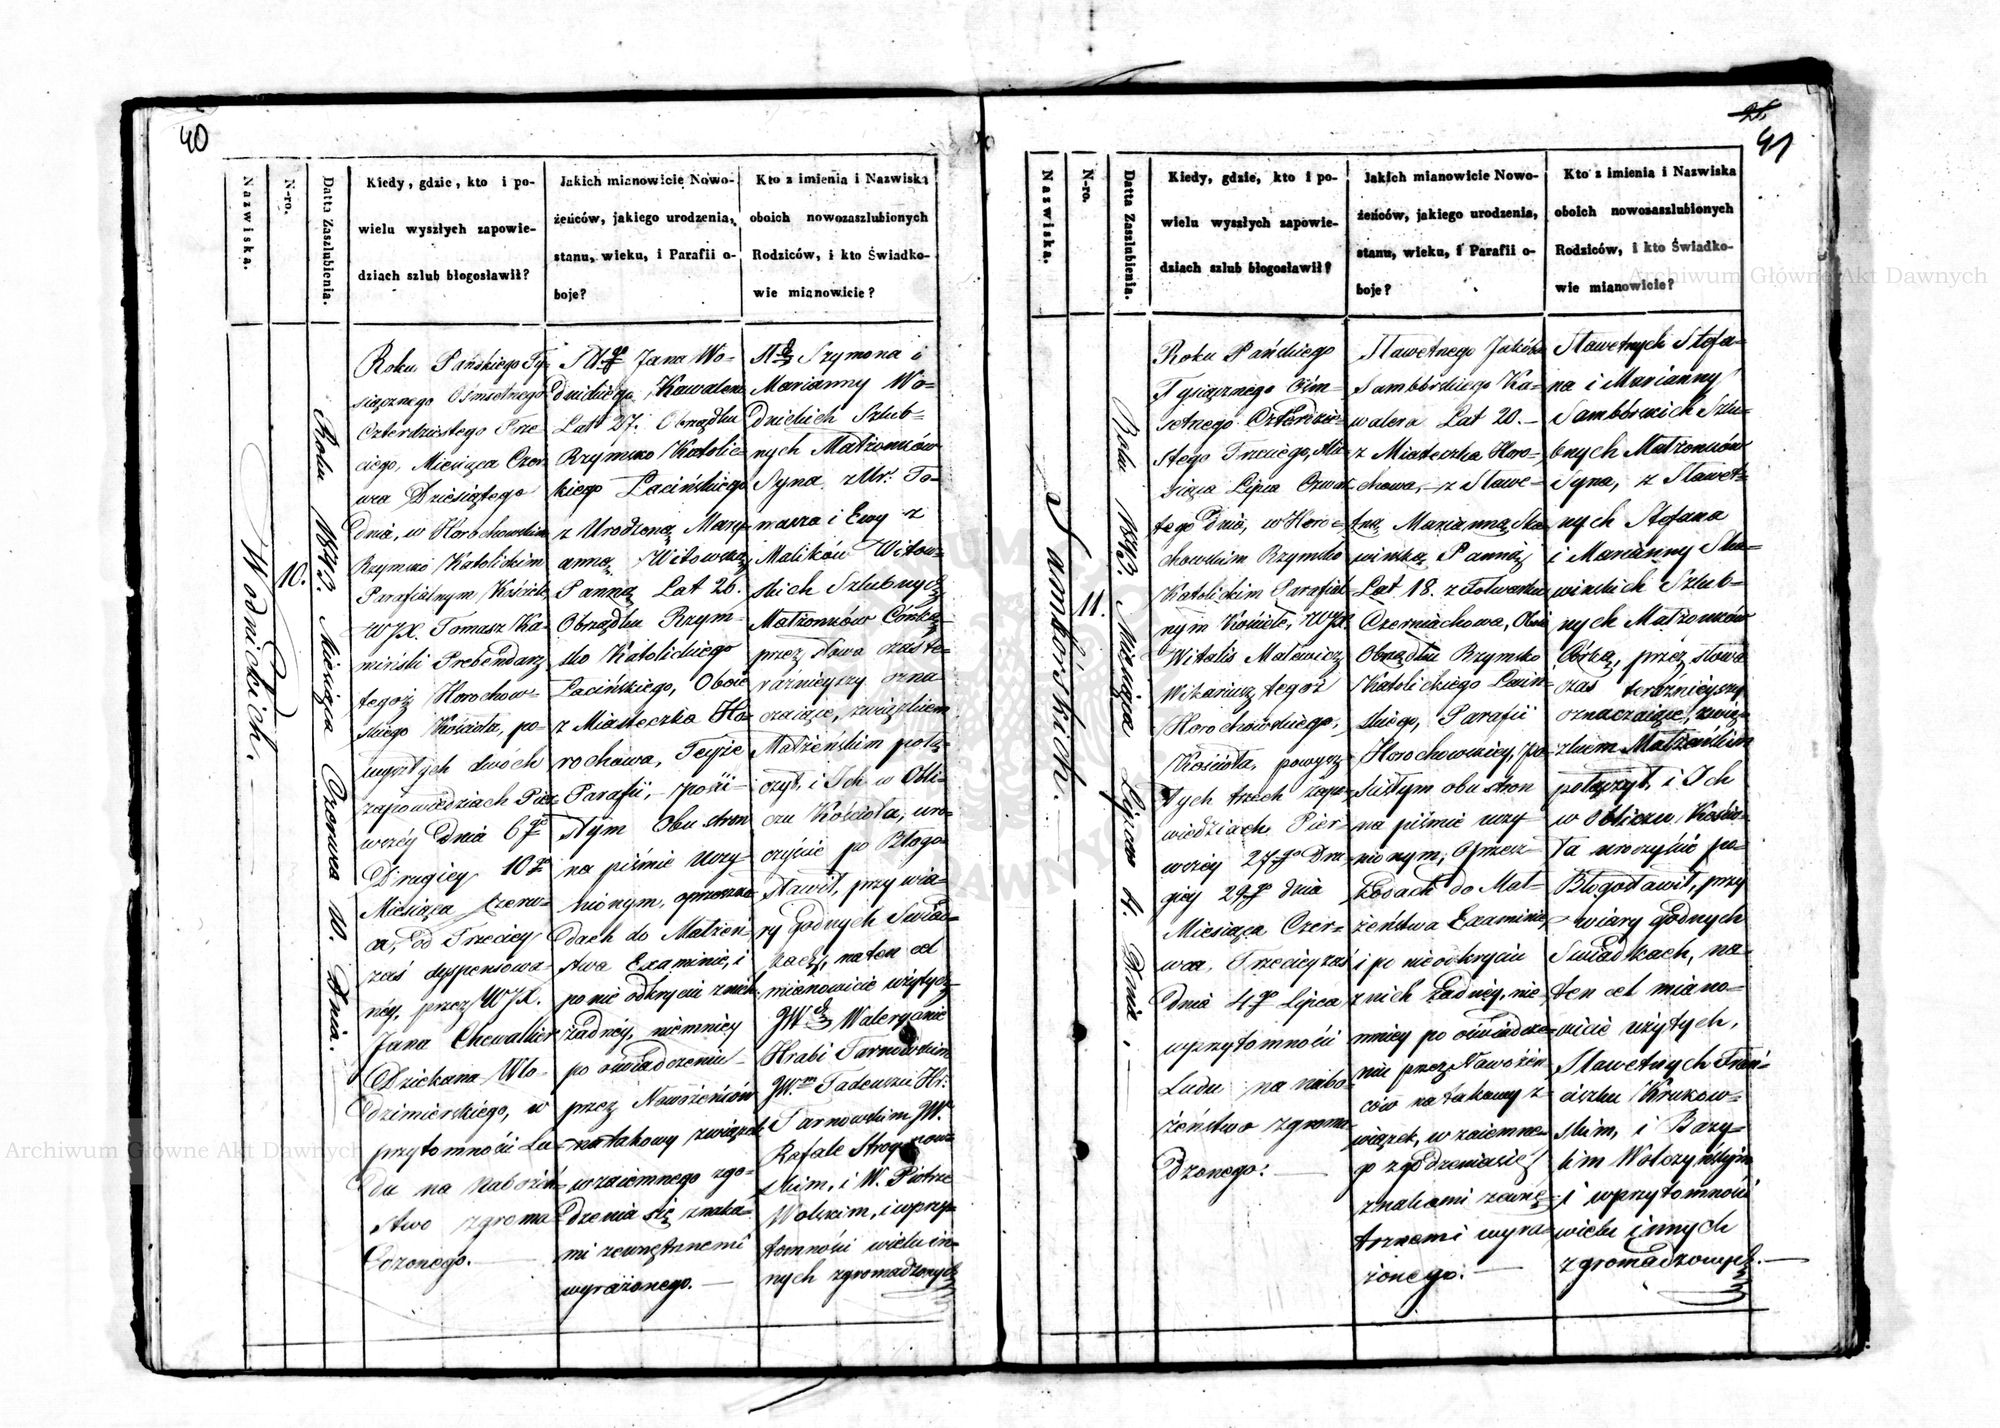 40
Nazwiska.
N-ro.
Datta Zaszlubienia.
Kiedy, gdzie, kto i po-
wielu wyszłych zapowie-
dziach szlub błogosławił?
Jakich mianowicie Nowo-
żeńców, jakiego urodzenia,
stanu, wieku, i Parafii o-
boje?
Kto z imienia i Nazwiska
oboich nowozaszlubionych
Rodziców, i kto Świadko-
wie mianowicie?
Wodnickich.
10.
Roku 1843. Miesiąca Czerwca 10. Dnia.
Roku Pańskiego Ty-
siącznego Ośmsetnego
Czterdziestego Trze
ciego, Miesiąca Czer
wca Dziesiątego
Dnia, w Horochowskim
Rzymsko Katolickim
Parafialnym Kościele
WJX. Tomasz Ka
miński Prebendarz
tegoż Horochow-
skiego Kościoła, po-
wyszłych dwóch
zapowiedziach Pier
wszéy Dnia 6go
Drugiey 10go
Miesiąca Czerw-
ca, od Trzeciey
zaś dyspensowa-
néy, przez WJX.
Jana Chewallier
Dziekana Wło-
dzimierskiego, w
przytomności Lu-
du na Nabożeń-
stwo zgroma
dzonego.
Jana Wo-
dnickiego, Kawalera
Lat 27. Obrządku
Rzymsko Katolic-
kiego Łacińskiego
z Urodzoną Mary-
anną Witowską
Panną Lat 26.
Obrządku Rzym-
sko Katolickiego
Łacińskiego, Oboie
z Miasteczka Ho-
rochowa, Teyże
Parafii, po ści-
słym Obu stron
na piśmie uczy-
nionym, o przeszko-
dach do Małżeń-
stwa Examinie, i
po nie odkryciu z nich
żadnéy, niemniey
po oświadczeniu
przez Nowożeńców
na takowy związek
wzaiemnego zgo-
dzenia się znaka-
mi zewnętrznemi
wyrażonego.
Szymona i
Marianny Wo-
dnickich Szlub-
nych Małżonków
Syna z Ur. To-
masza i Ewy z
Malików Witow-
skich Szlubnych
Małżonków Córką
przez słowa czas te-
raźnieyszy ozna
czaiące, związkiem
Małżeńskim połą-
czył, i Ich w Obli-
czu Kościoła, uro-
czyście po Błogo-
sławił, przy wia-
ry godnych Świad-
kach, na ten cel
mianowicie użytych
Waleryanie
Hrabi Tarnowskim
JW. Tadeuszu Hr:
Tarnowskim JW.
Rafale Stroynow-
skim, i W. Piotrze
Wolskim, i w przy-
tomności wielu in-
nych zgromadzonych
41
Nazwiska.
N-ro.
Datta Zaszlubienia.
Kiedy, gdzie, kto i po-
wielu wyszłych zapowie-
dziach szlub błogosławił?
Jakich mianowicie Nowo-
żeńców, jakiego urodzenia,
stanu, wieku, i Parafii o-
boje?
Kto z imienia i Nazwiska
oboich nowozaszlubionych
Rodziców, i kto Świadko-
wie mianowicie?
Samborskich.
11.
Roku 1843. Miesiąca Lipca 4. Dnia.
Roku Pańskiego
Tysiącznego Ośm-
setnego Czterdzie-
stego Trzeciego, Mie
siąca Lipca Czwar
tego Dnia, w Horo-
chowskim Rzymsko
Katolickim Parafial
nym Kościele, WJX.
Witalis Malewicz
Wikariusz tegoż
Horochowskiego,
Kościoła, powysz-
łych trzech zapo-
wiedziach, Pier-
wszéy 27go Dru
giey 29go dnia
Miesiąca Czer-
wca, Trzeciey zaś
Dnia 4go Lipca
w przytomności
Ludu na nabo-
żeństwo zgroma
dzonego.
Sławetnego Jakóba
Samborskiego Ka-
walera Lat 20.
z Miasteczka Horo-
chowa, z Sławe-
tną Marianną Ska
winską Panną
Lat 18. z Folwarku
Czerniachowa, Oboie
Obrządku Rzymsko
Katolickiego Łaciń-
skiego, Parafii
Horochowskiey, po
ścisłym obu stron
na piśmie uczy-
nionym, O przesz-
kodach do Mał-
żeństwa Examinie,
i po nieodkryciu
z nich żadnéy, nie-
mniey po oświadcze-
niu przez Nowożeń
ców na takowy z-
wiązek, wzaiemne-
go zgodzenia się
znakami zewnę-
trznemi wyra-
żonego.
Sławetnych Stefa-
na i Marianny
Samborskich Szlu-
bnych Małżonków
Syna, z Sławet-
nych Stefana
i Marianny Ska-
winskich Szlub-
nych Małżonków
Córką, przez słowa
czas teraźnieyszy
oznaczaiące, zwią-
zkiem Małżeńskim
połączył, i Ich
w obliczu Kościo-
ła uroczyście po-
Błogosławił, przy
wiary godnych
Świadkach, na-
ten cel miano-
wicie użytych,
Sławetnych Fran-
ciszku Krukow-
skim, i Bazy-
lim Wolczyńskim
i w przytomności
wielu innych
zgromadzonych.
Archiwum Główne Akt Dawnych
Archiwum Główne Akt Dawnych